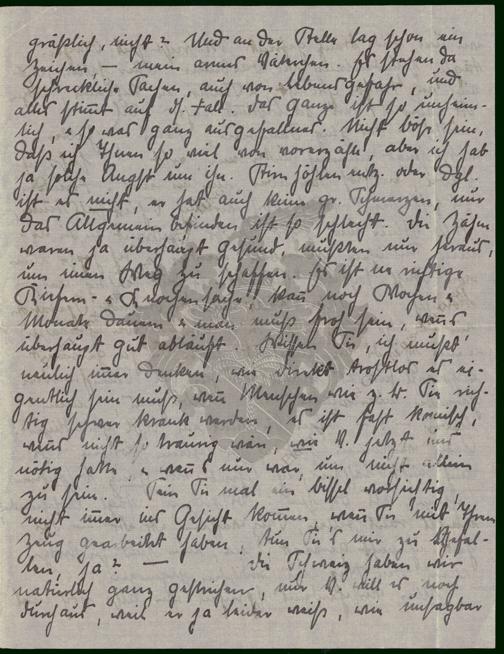 gräßlich, nicht? Und an der Stelle lag schon ein
Zeichen, — mein armes Väterchen. Es stehen da
schreckliche Sachen, auch von Lebensgefahr, und
alles stimmt auf d. Fall. Das ganze ist so unheim-
lich, so was ganz ausgefallenes. Nicht böse sein,
daß ich Ihnen so viel von vorerzähle, aber ich hab
ja solche Angst um ihn. Stirnhöhlenentz. oder dgl.
ist es nicht, er hat auch kaum gr. Schmerzen, nur
das Allgemeinbefinden ist so schlecht. Die Zähne
waren ja überhaupt gesund, mußten nur heraus,
um einen Weg zu schaffen. Es ist ne richtige
Kiefern- & Knochensache, kann noch Wochen &
Monate dauern & man muß froh sein, wenn's
überhaupt gut abläuft. Wissen Sie, ich mußt'
neulich immer denken, wie direkt trostlos es ei-
gentlich sein muß, wenn Menschen wie z. B. Sie rich-
tig schwer krank werden, es ist fast komisch,
wenns nicht so traurig wär, wie V. jetzt uns
nötig hatte, & wenn's nur war, um nicht allein
zu sein. Sein Sie mal ein bissel vorsichtig,
nicht immer ins Gesicht kommen, wenn Sie mit Ihrem
Zeug gearbeitet haben, tun Sie's mir zu Gefal-
len, ja? — Die Schweiz haben wir
natürlich ganz gestrichen, nur V. will es noch
durchaus, weil er ja leider weiß, wie unsagbar